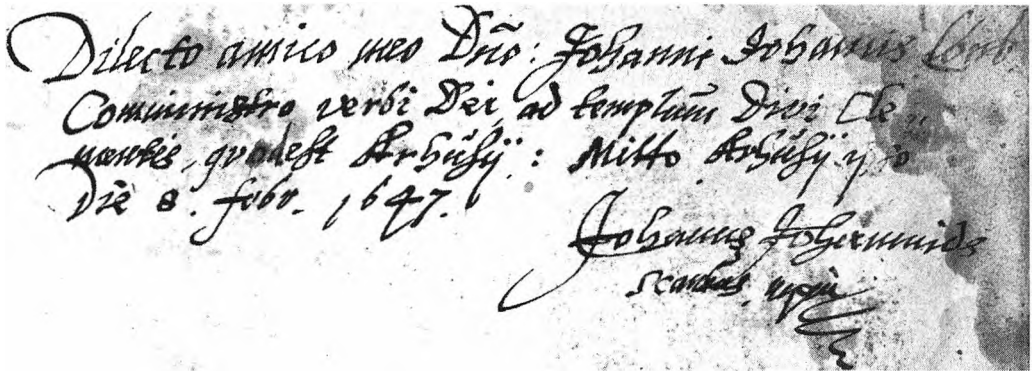 Dilecto amico meo Dño: Johanni Johannis
Comministro verbi Dei, ad templum Divi Cle„
mentis, qvodest Arhusij: Mitto Arhusij
Die 8. febr. 1647.
Johannes